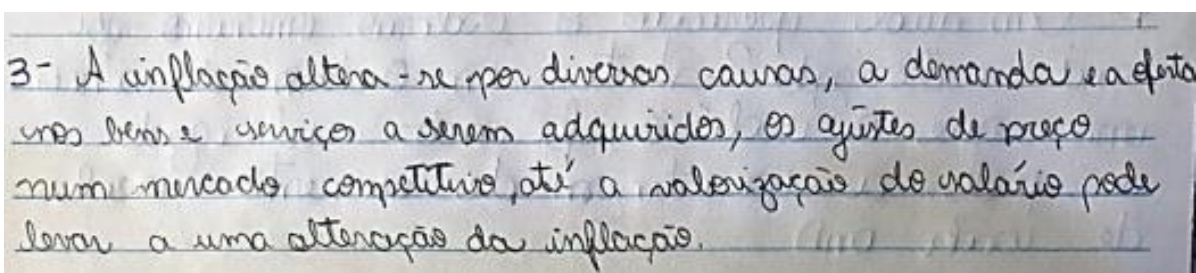 3- A inflação altera-se por diversas causas, a demanda e a oferta
nos bens e serviços a serem adquiridos, os ajustes de preço
num mercado competitivo, até a valorização do salário pode
levar a uma alteração da inflação.